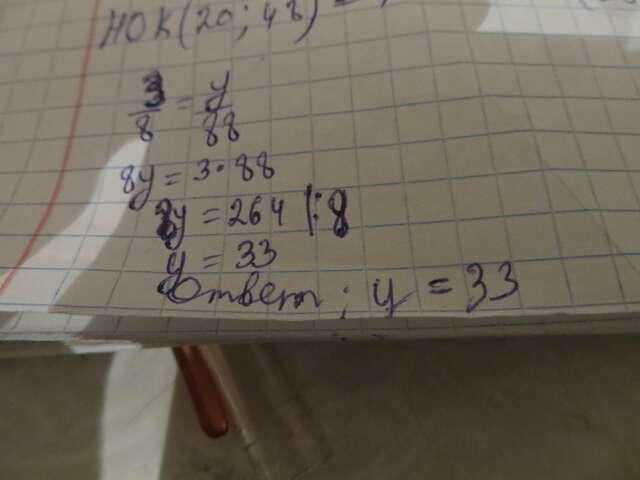 НОК(20; 48) =
3/8 = y/88
8y = 3·88
8y = 264 |:8
y = 33
Ответ: y = 33